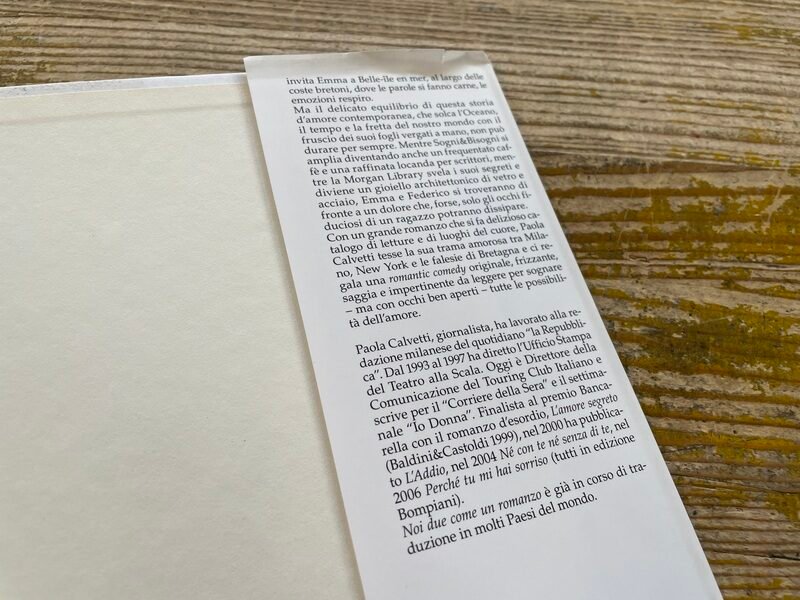 invita Emma a Belle-île en mer, al largo delle
coste bretoni, dove le parole si fanno carne, le
emozioni respiro.
Ma il delicato equilibrio di questa storia
d'amore contemporanea, che solca l'Oceano,
il tempo e la fretta del nostro mondo con il
fruscio dei suoi fogli vergati a mano, non può
durare per sempre. Mentre Sogni&Bisogni si
amplia diventando anche un frequentato caf-
fè e una raffinata locanda per scrittori, men-
tre la Morgan Library svela i suoi segreti e
diviene un gioiello architettonico di vetro e
acciaio, Emma e Federico si troveranno di
fronte a un dolore che, forse, solo gli occhi fi-
duciosi di un ragazzo potranno dissipare.
Con un grande romanzo che si fa delizioso ca-
talogo di letture e di luoghi del cuore, Paola
Calvetti tesse la sua trama amorosa tra Mila-
no, New York e le falesie di Bretagna e ci re-
gala una romantic comedy originale, frizzante,
saggia e impertinente da leggere per sognare
– ma con occhi ben aperti – tutte le possibili-
tà dell'amore.
Paola Calvetti, giornalista, ha lavorato alla re-
dazione milanese del quotidiano "la Repubbli-
ca". Dal 1993 al 1997 ha diretto l'Ufficio Stampa
del Teatro alla Scala. Oggi è Direttore della
Comunicazione del Touring Club Italiano e
scrive per il "Corriere della Sera" e il settima-
nale "Io Donna". Finalista al premio Banca-
rella con il romanzo d'esordio, L'amore segreto
(Baldini&Castoldi 1999), nel 2000 ha pubblica-
to L'Addio, nel 2004 Né con te né senza di te, nel
2006 Perché tu mi hai sorriso (tutti in edizione
Bompiani).
Noi due come un romanzo è già in corso di tra-
duzione in molti Paesi del mondo.